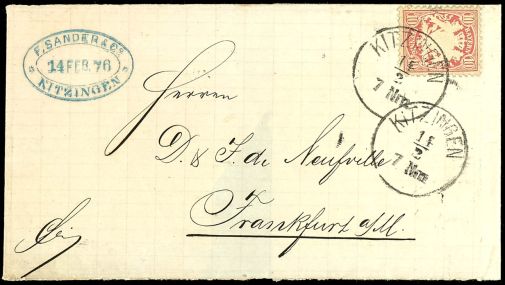 F. SANDER & Co
14 FEB. 76
KITZINGEN
KITZINGEN
2
7 Nm
KITZINGEN
2
7 Nm
Herren
D. & J. de Neufville
Frankfurt a/M.